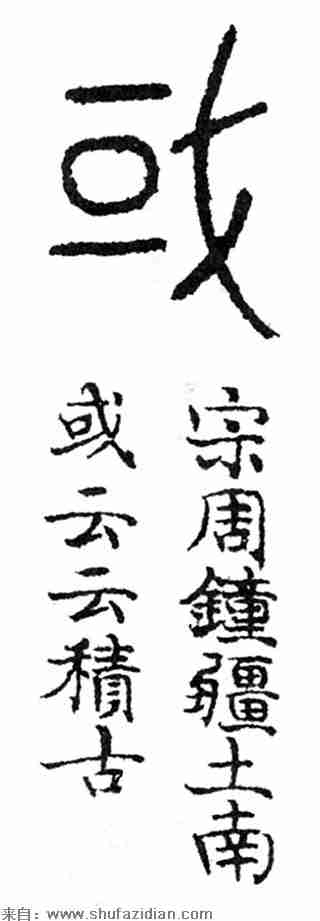 或
宗周鐘疆土南
或云云積古
来自：www.shufazidian.com